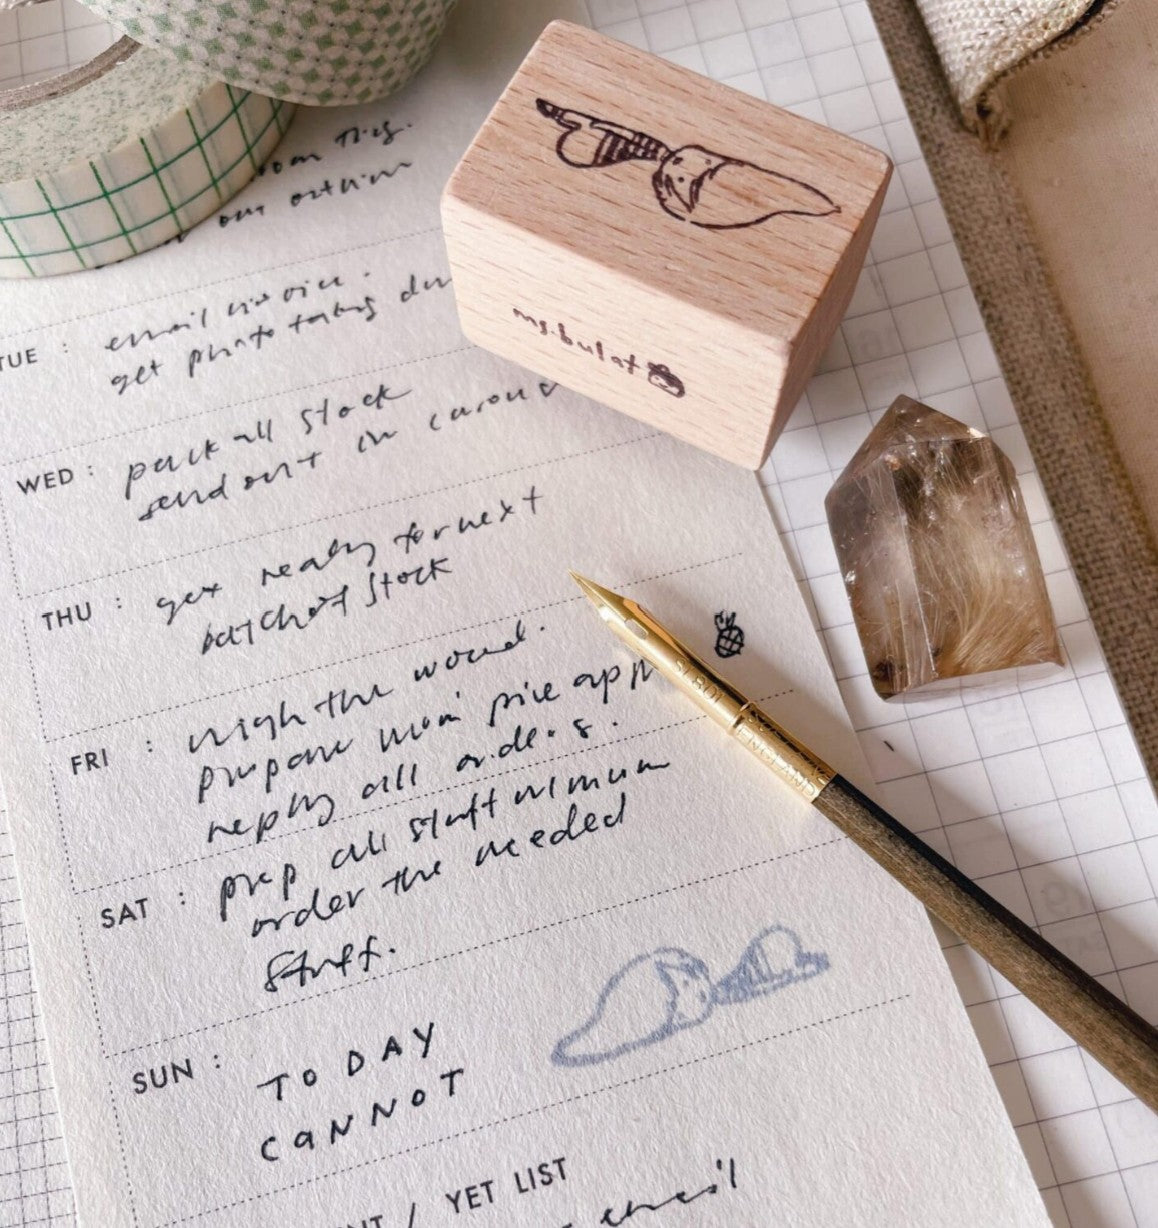 from this.
our
TUE : email invoice.
get photo taking
WED : pack all stock
send out in
THU : get ready for next
batch of stock
FRI : nigh the wound.
prepare mom pice app
reply all orders.
SAT : prep all stuff
order the needed
stuff.
SUN : TODAY
CANNOT
/ YET LIST
email
ms.bulat
ENGLAND